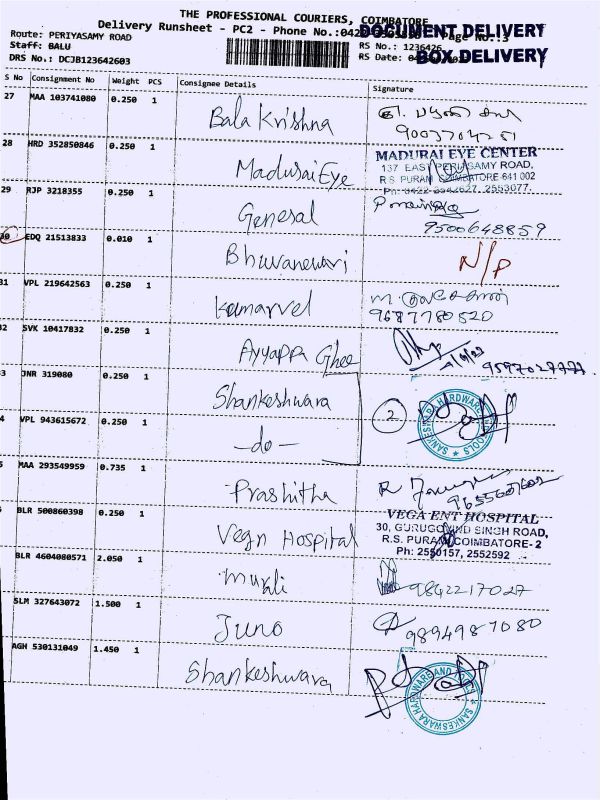 THE PROFESSIONAL COURIERS, COIMBATORE
Delivery Runsheet - PC2 - Phone No.:
DOCUMENT DELIVERY
Page No.:3
Route: PERIYASAMY ROAD
Staff: BALU
DRS No.: DCJB123642603
RS No.: 1236426
RS Date:
BOX DELIVERY
S No Consignment No Weight PCS Consignee Details Signature
27 MAA 103741080 0.250 1 Bala Krishna
28 HRD 352850846 0.250 1 Madurai Eye
MADURAI EYE CENTER
137 EAST PERIASAMY ROAD,
R.S PURAM COIMBATORE-641 002
Ph: 0422 2542627, 2553077.
29 RJP 3218355 0.250 1 General
9500648859
30 EDQ 21513833 0.010 1 Bhuvaneswari N/P
31 VPL 219642563 0.250 1 Kumarvel
9687780520
32 SVK 10417832 0.250 1 Ayyappa Ghee
3 JNR 319080 0.250 1 Shankeshwara 2
SANKESWARA HARDWARE AND TOOLS
4 VPL 943615672 0.250 1 -do-
5 MAA 293549959 0.735 1 Prashitha
BLR 500860398 0.250 1 Vegn Hospital
VEGA ENT HOSPITAL
30, GURUGOVIND SINGH ROAD,
R.S. PURAM, COIMBATORE-2
Ph: 2550157, 2552592
BLR 4604080571 2.050 1 Murali 9842217027
SLM 327643072 1.500 1 Juno 9894987080
AGH 530131049 1.450 1 Shankeshwara
SANKESWARA HARDWARE AND TOOLS